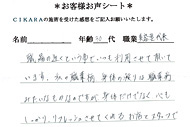 *お客様お声シート*
CIKARAの施術を受けた感想をご記入お願いいたします。
名前 年齢 30代 職業 経営代表
職場の近くという事でいつも利用させて頂いて
います。私の職業柄 身体の疲れは職業病
みたいなものなのですが 身体だけでなく心も
しっかりリフレッシュさせてくれる お店とスタッフで